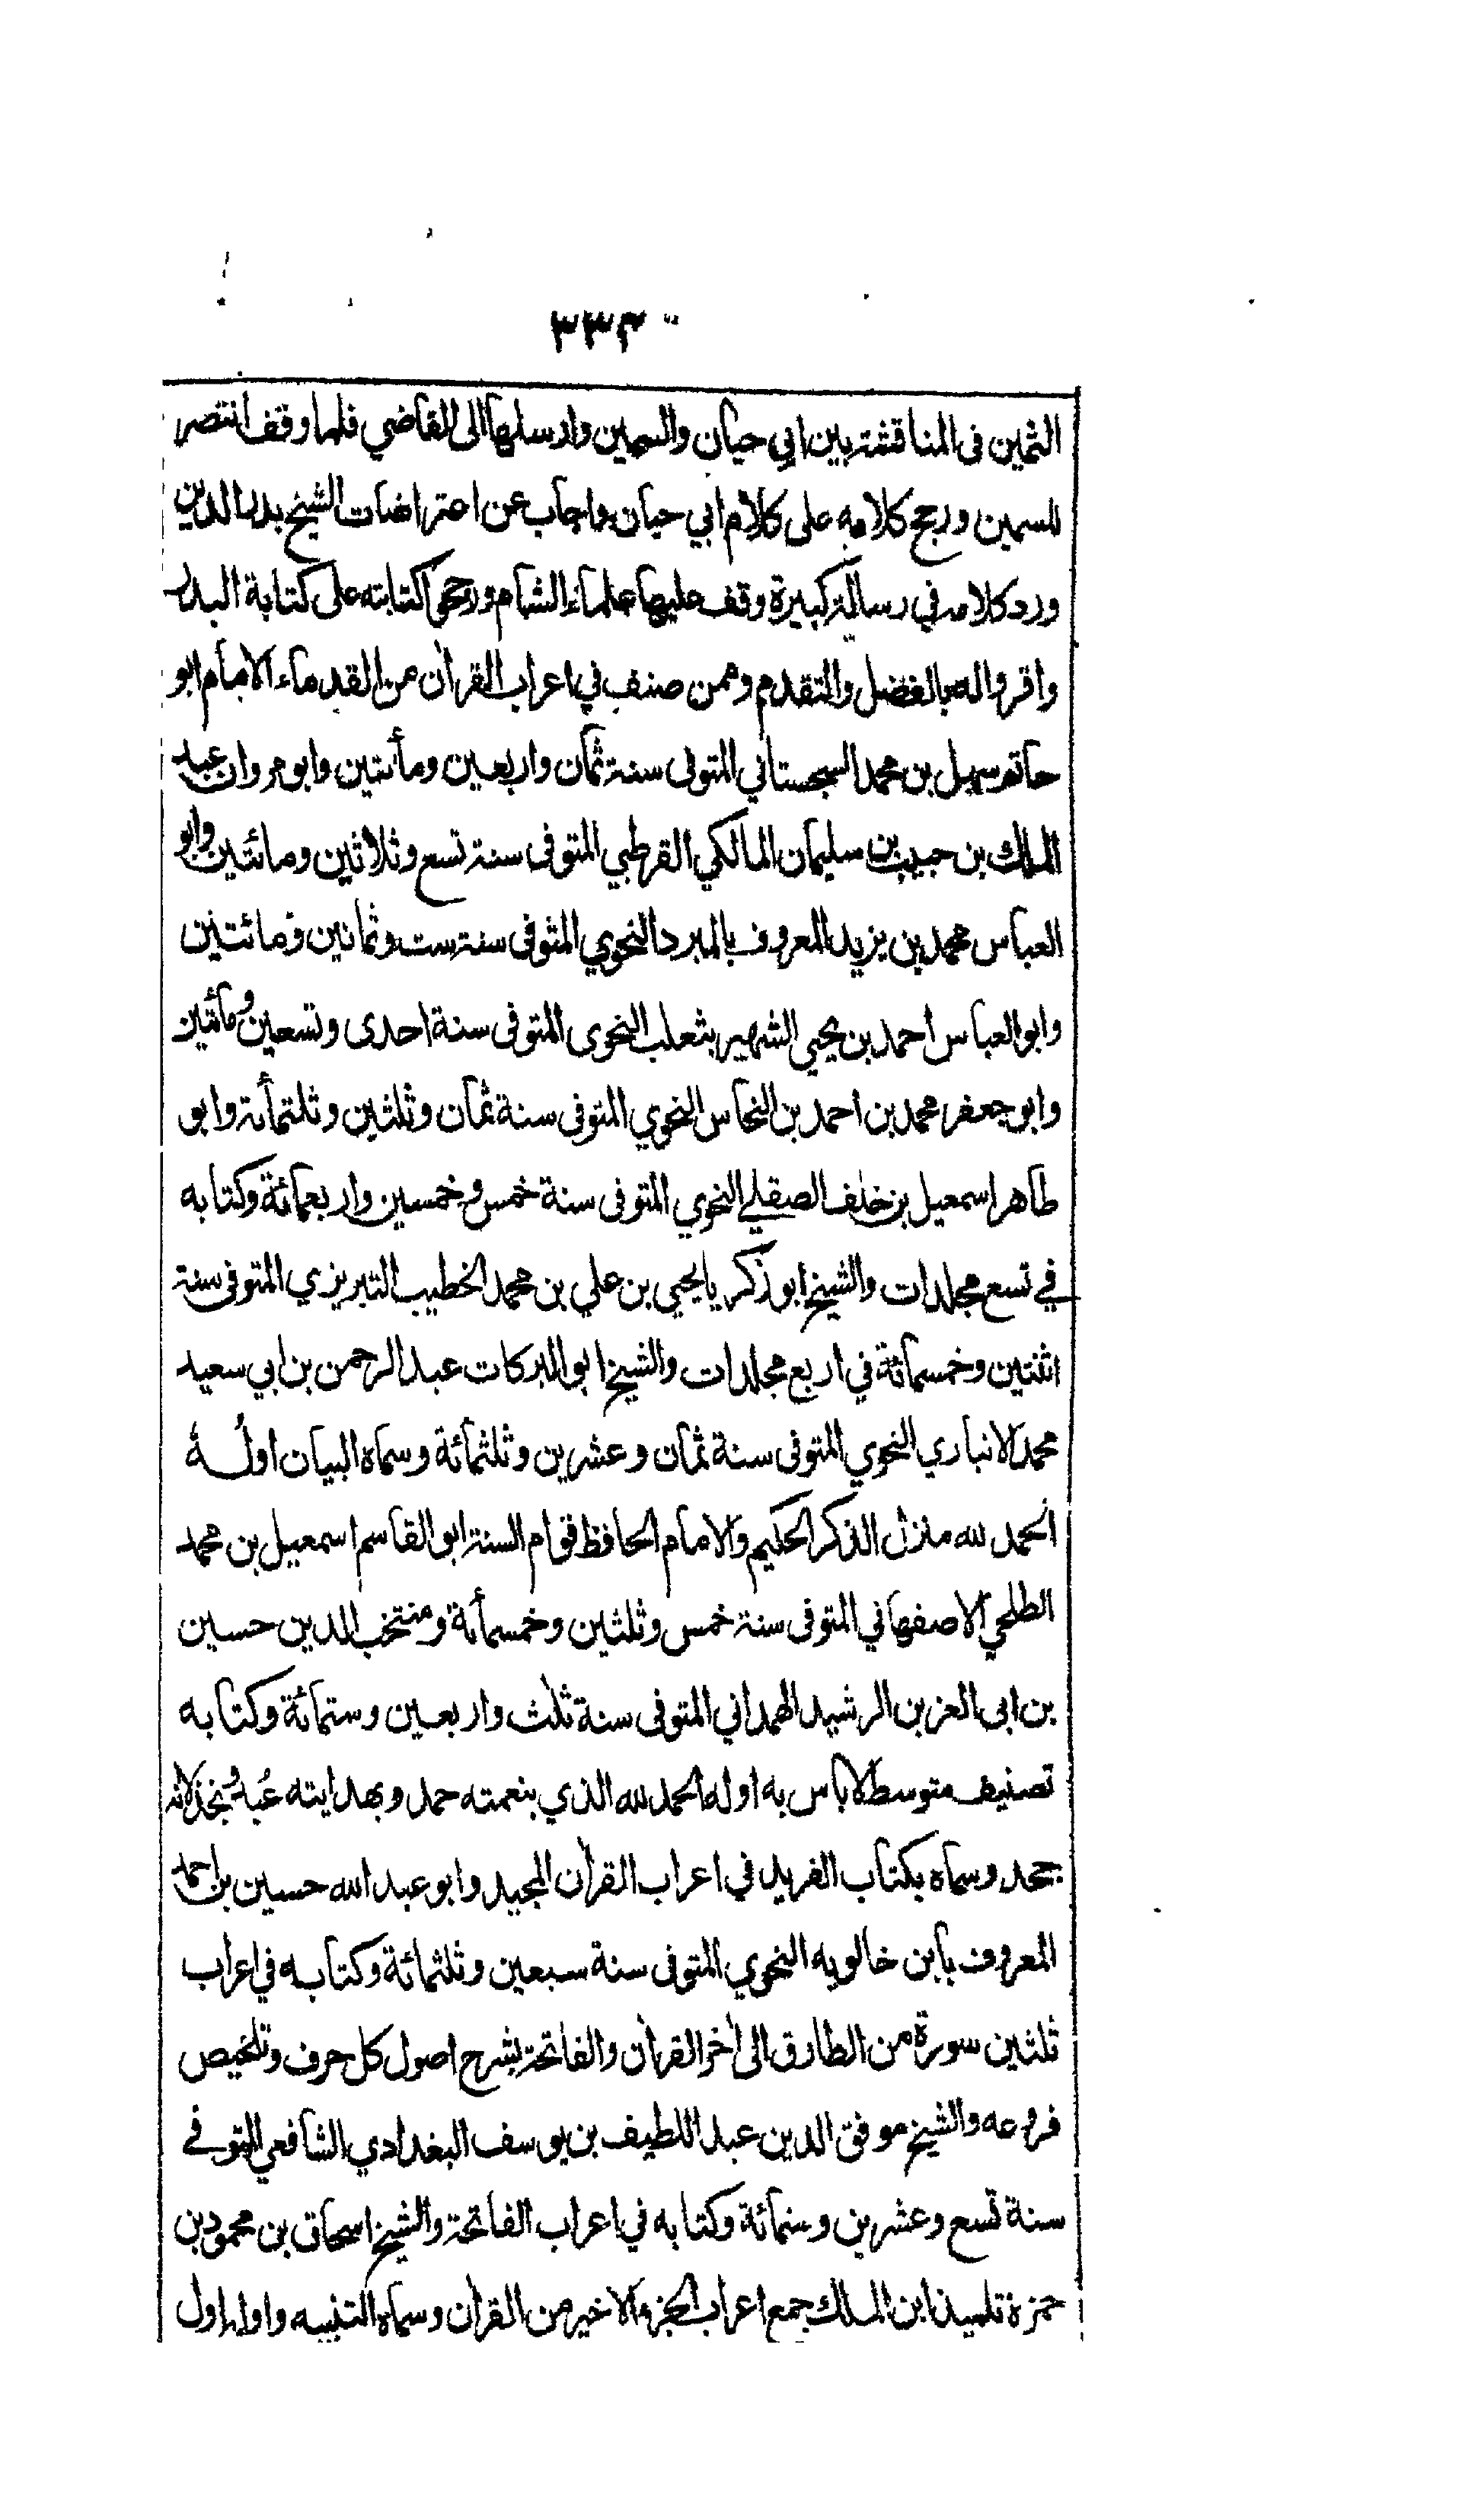 ٣٣٣
الثمين فى المناقشة بين ابي حيان والسمين وارسلها الى القاضي فلما وقف انتصر
للسمين ورجح كلامه على كلام ابي حيان واجاب عن اعتراضات الشيخ بدر الدين
ورد كلامه في رسالة كبيرة وقف عليها علماء الشام ورجحوا كتابته على كتابة البدر
واقروا له بالفضل والتقدم وممن صنف في اعراب القران من القدماء الامام ابو
حاتم سهل بن محمد السجستاني المتوفى سنة ثمان واربعين ومأتين وابو مروان عبد
الملك بن حبيب بن سليمان المالكي القرطبي المتوفى سنة تسع وثلاثين ومائتين وابو
العباس محمد بن يزيد المعروف بالمبرد النحوي المتوفى سنة ست وثمانين ومائتين
وابو العباس احمد بن يحيى الشهير بثعلب النحوى المتوفى سنة احدى وتسعين ومأتين
وابو جعفر محمد بن احمد بن النحاس النحوي المتوفى سنة ثمان وثلثين وثلثمأة وابو
طاهر اسمعيل بن خلف الصقلي النحوي المتوفى سنة خمس وخمسين واربعمائة وكتابه
في تسع مجلدات والشيخ ابو زكريا يحيى بن علي بن محمد الخطيب التبريزي المتوفى سنة
اثنتين وخمسمائة في اربع مجلدات والشيخ ابو البركات عبد الرحمن بن ابي سعيد
محمد الانباري النحوي المتوفى سنة ثمان وعشرين وثلثمائة وسماه البيان اوله
الحمد لله منزل الذكر الحكيم والامام الحافظ قوام السنة ابو القاسم اسمعيل بن محمد
الطلحي الاصفهاني المتوفى سنة خمس وثلثين وخمسمأة ومنتخب الدين حسين
بن ابى العز بن الرشيد الهمداني المتوفى سنة ثلث واربعين وستمائة وكتابه
تصنيف متوسط لاباس به اوله الحمد لله الذي بنعمته حمد وبهدايته عُبد وبخذلانه
جحد وسماه بكتاب الفريد في اعراب القران المجيد وابو عبد الله حسين بن احمد
المعروف بابن خالويه النحوي المتوفى سنة سبعين وثلثمائة وكتابه في اعراب
ثلثين سورة من الطارق الى اخر القران والفاتحة بشرح اصول كل حرف وتلخيص
فروعه والشيخ موفق الدين عبد اللطيف بن يوسف البغدادي الشافعي المتوفى
سنة تسع وعشرين وستمائة وكتابه في اعراب الفاتحة والشيخ اسحاق بن محمود بن
حمزة تلميذ ابن الملك جمع اعراب الجزء الاخير من القران وسماه التنبيه واوله اول